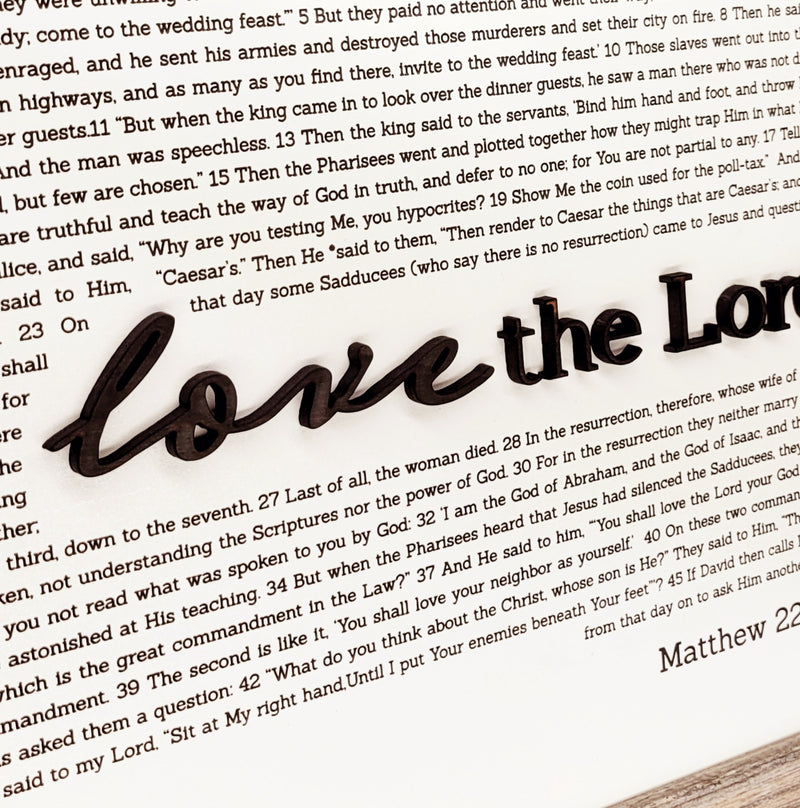 they were unwilling
dy; come to the wedding feast."' 5 But they paid no attention and went their way,
enraged, and he sent his armies and destroyed those murderers and set their city on fire. 8 Then he sai
n highways, and as many as you find there, invite to the wedding feast.' 10 Those slaves went out into
er guests.11 "But when the king came in to look over the dinner guests, he saw a man there who was not d
And the man was speechless. 13 Then the king said to the servants, 'Bind him hand and foot, and throw
, but few are chosen." 15 Then the Pharisees went and plotted together how they might trap Him in what
are truthful and teach the way of God in truth, and defer to no one; for You are not partial to any. 17 Tell
lice, and said, "Why are you testing Me, you hypocrites? 19 Show Me the coin used for the poll-tax." And
said to Him, "Caesar's." Then He *said to them, "Then render to Caesar the things that are Caesar's; and
. 23 On that day some Sadducees (who say there is no resurrection) came to Jesus and questi
shall
for
re
he
ng
ther;
love the Lor
third, down to the seventh. 27 Last of all, the woman died. 28 In the resurrection, therefore, whose wife of
ken, not understanding the Scriptures nor the power of God. 30 For in the resurrection they neither marry
you not read what was spoken to you by God: 32 'I am the God of Abraham, and the God of Isaac, and th
astonished at His teaching. 34 But when the Pharisees heard that Jesus had silenced the Sadducees, they
which is the great commandment in the Law?" 37 And He said to him, "'You shall love the Lord your God
mandment. 39 The second is like it, 'You shall love your neighbor as yourself.' 40 On these two comman
s asked them a question: 42 "What do you think about the Christ, whose son is He?" They said to Him, "Th
said to my Lord, "Sit at My right hand,Until I put Your enemies beneath Your feet"'? 45 If David then calls
from that day on to ask Him anothe
Matthew 22